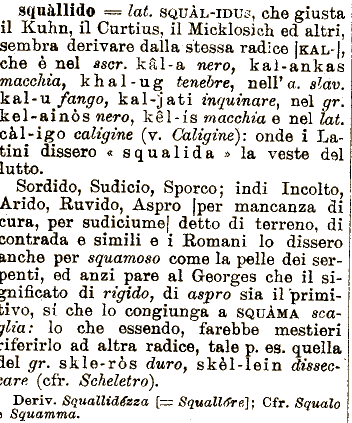 squàllido = lat. SQUÀL-IDUS, che giusta
il Kuhn, il Curtius, il Micklosich ed altri,
sembra derivare dalla stessa radice |KAL-|,
che è nel sscr. kâl-a nero, kal-ankas
macchia, khal-ug tenebre, nell' a. slav.
kal-u fango, kal-jati inquinare, nel gr.
kel-ainòs nero, kêl-is macchia e nel lat.
càl-igo caligine (v. Caligine): onde i La-
tini dissero « squalida » la veste del
lutto.
Sordido, Sudicio, Sporco; indi Incolto,
Arido, Ruvido, Aspro |per mancanza di
cura, per sudiciume| detto di terreno, di
contrada e simili e i Romani lo dissero
anche per squamoso come la pelle dei ser-
penti, ed anzi pare al Georges che il si-
gnificato di rigido, di aspro sia il primi-
tivo, sì che lo congiunga a SQUÀMA sca-
glia: lo che essendo, farebbe mestieri
riferirlo ad altra radice, tale p. es. quella
del gr. skle-ròs duro, skèl-lein dissec-
care (cfr. Scheletro).
Deriv. Squallidézza [= Squallóre]; Cfr. Squalo
e Squamma.